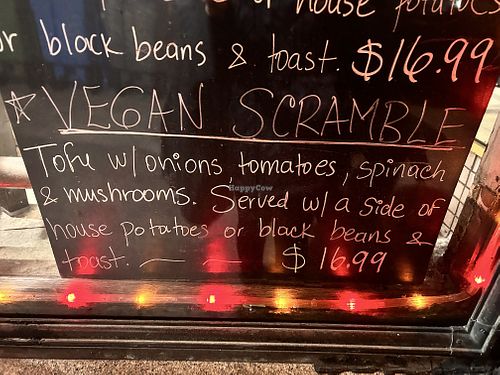 or house potatoes
or black beans & toast. $16.99
☆ VEGAN SCRAMBLE
Tofu w/onions, tomatoes, spinach
& mushrooms. Served w/ a side of
house potatoes or black beans &
toast. — — $16.99
HappyCow